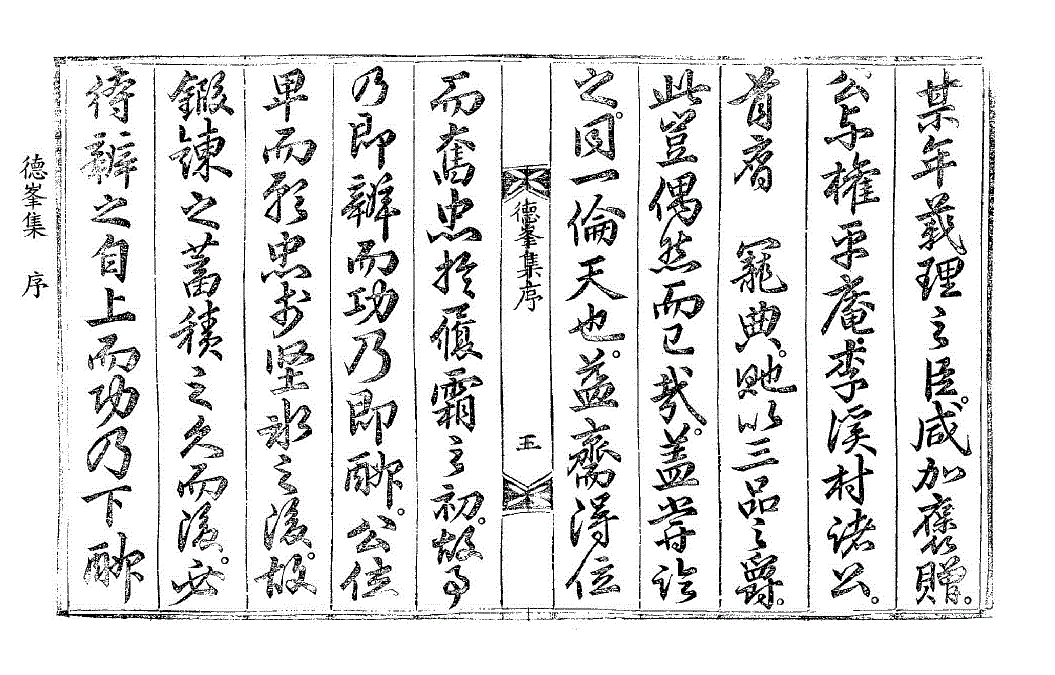 某年義理之臣。咸加褒贈。
公与權平庵李溪村諸公。
首膺 寵典。貤以三品之爵。
此豈偶然而已哉。盖嘗論
之。同一倫天也。益齋得位
德峯集序 五
而奮忠於履霜之初。故事
乃即辦而功乃即酬。公位
卑而形忠於堅氷之後。故
鍛鍊之蓄積之久而後。必
待辦之自上而功乃下酬
德峯集 序